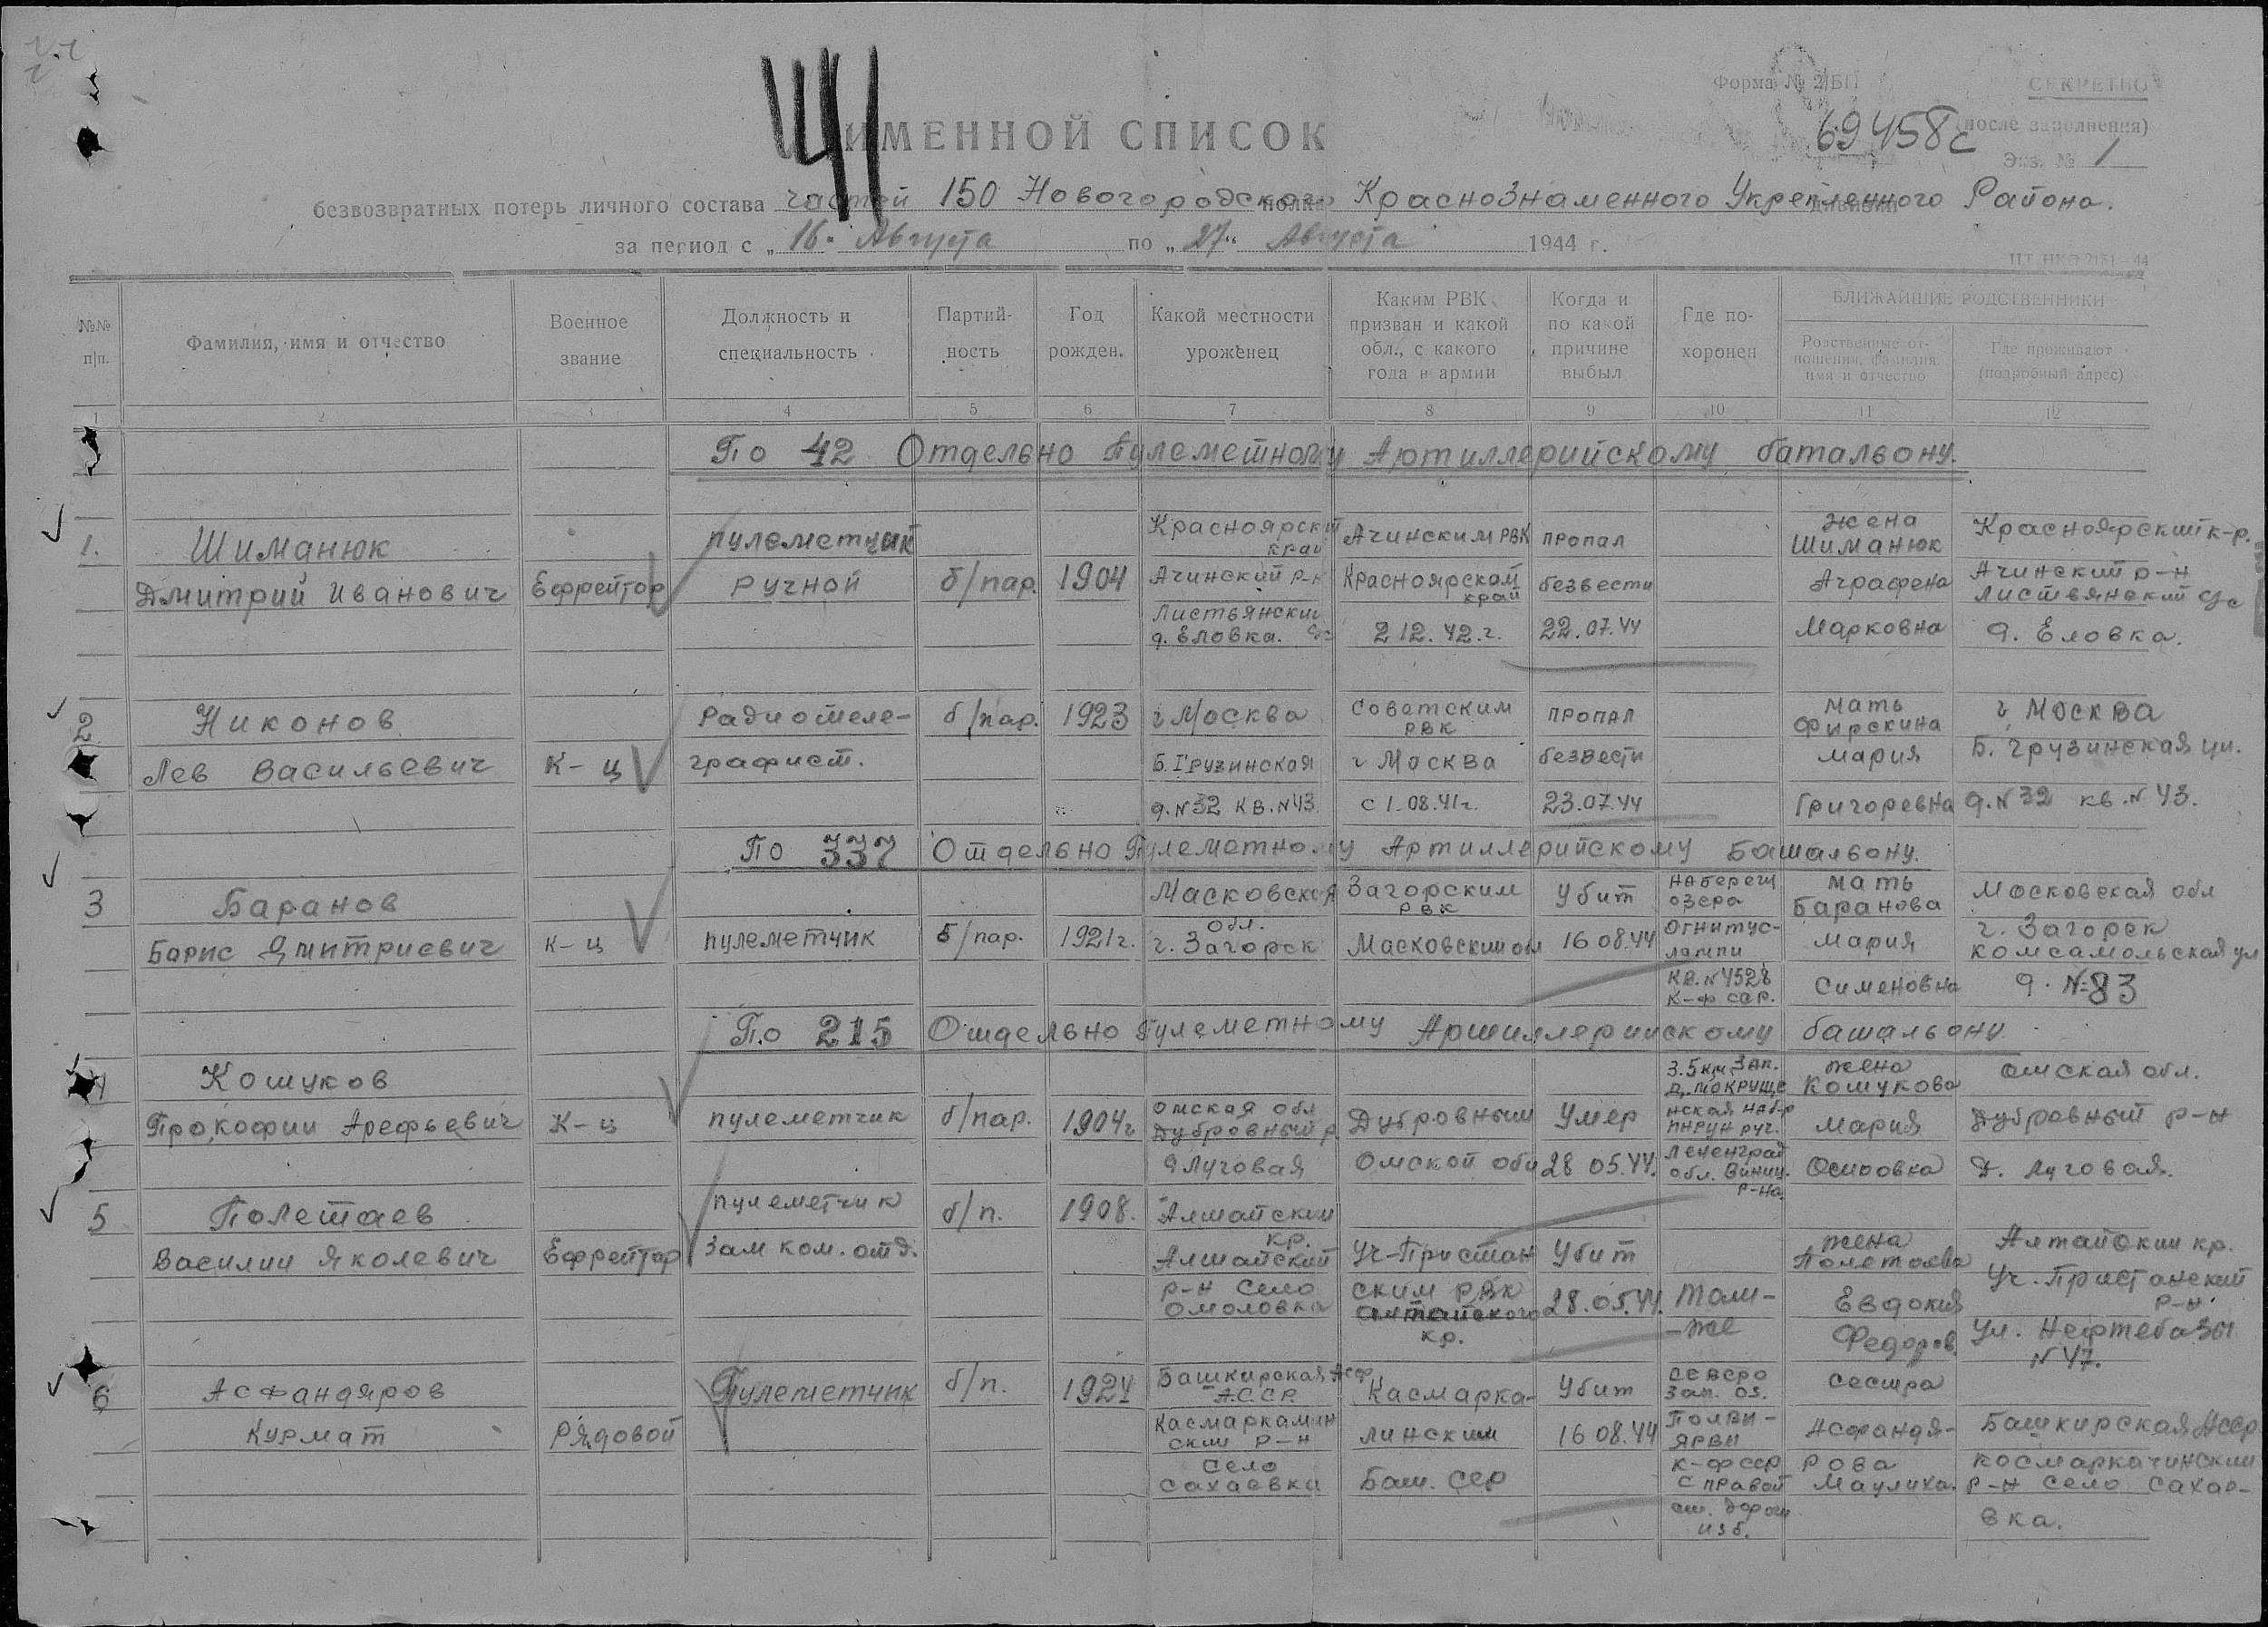 Форма № 2/БП
СЕКРЕТНО
69458с
(после заполнения)
Экз. № 1
41
ИМЕННОЙ СПИСОК
безвозвратных потерь личного состава частей 150 Новогородского полка Краснознаменного Укрепленного дивизии Района.
за период с „16" Августа по „27" Августа 1944 г.
№№ п/п.
Фамилия, имя и отчество
Военное звание
Должность и специальность
Партий-ность
Год рожден.
Какой местности уроженец
Каким РВК призван и какой обл., с какого года в армии
Когда и по какой причине выбыл
Где по-хоронен
БЛИЖАЙШИЕ РОДСТВЕННИКИ
Родственные от-ношения, фамилия, имя и отчество
Где проживают (подробный адрес)
1 2 3 4 5 6 7 8 9 10 11 12
По 42 Отдельно Пулеметному Артиллерийскому батальону.
1. Шиманюк пулеметчик Красноярский край Ачинским РВК пропал жена Шиманюк Красноярский к-р.
Дмитрий Иванович Ефрейтор ручной б/пар. 1904 Ачинский р-н Красноярской край безвести Аграфена Ачинский р-н Листвянский с/с
Листьянский с/с д. Еловка. 2 12. 42. г. 22.07.44 Марковна д. Еловка.
2 Никонов Радиотеле- б/пар. 1923 г Москва Советским РВК пропал мать Фирскина г. Москва
Лев Васильевич К-ц графист. Б. Грузинская г Москва безвести мария Б. Грузинская ул.
д. N32 кв. N43 с 1.08.41г. 23.07.44 Григоревна д. N 32 кв. N 43.
По 337 Отдельно Пулеметному Артиллерийскому Батальону.
3 Баранов Масковская обл. Загорским РВК Убит на берегу озера мать Баранова Московская обл
Барис Дмитриевич к-ц пулеметчик б/пар. 1921г. г. Загорск Масковский обл 16 08.44 Огнитус-лампи мария г. Загорск комсамольская ул
кв. N 4528 к-ф сср. Сименовна д. № 83
По 215 Отдельно Пулеметному Артиллерийскому батальону
4 Кошуков 3.5 км. Зап. д. мокруще жена Кошукова омская обл.
Прокофии Арефьевич К-ц пулеметчик б/пар. 1904г Омская обл Дубровный р Дубровным Умер нская наб-р мария Дубровный р-н
д Луговая Омской обл 28 05.44. Лененград обл. Винниц. р-на Осиповна д. Луговая.
5 Полетаев пулеметчик б/п. 1908. Алтайский кр.
Василии Яколевич Ефрейтор зам ком. отд. Алтайский Уч-Пристан Убит жена Полетаева Алтайский кр.
р-н Село Омоловка ским РВК алтайского кр. 28.05.44. Там- Евдокия Уч. Пристанский р-н.
-же Федоров. Ул. Нефтебазы N 47.
6 Асфандяров Пулеметчик б/п. 1924 Башкирская А.С.С.Р. Касмарка- Убит северо зап. оз. сестра
Курмат Рядовой Касмаркалин ский р-н линским 16 08.44 ярви Асфандя- Башкирская Асср
Село Сахаевка Баш. сср к-ф сср Справой рова Маулиха. космаркачинский р-н село Сахар-
вка.